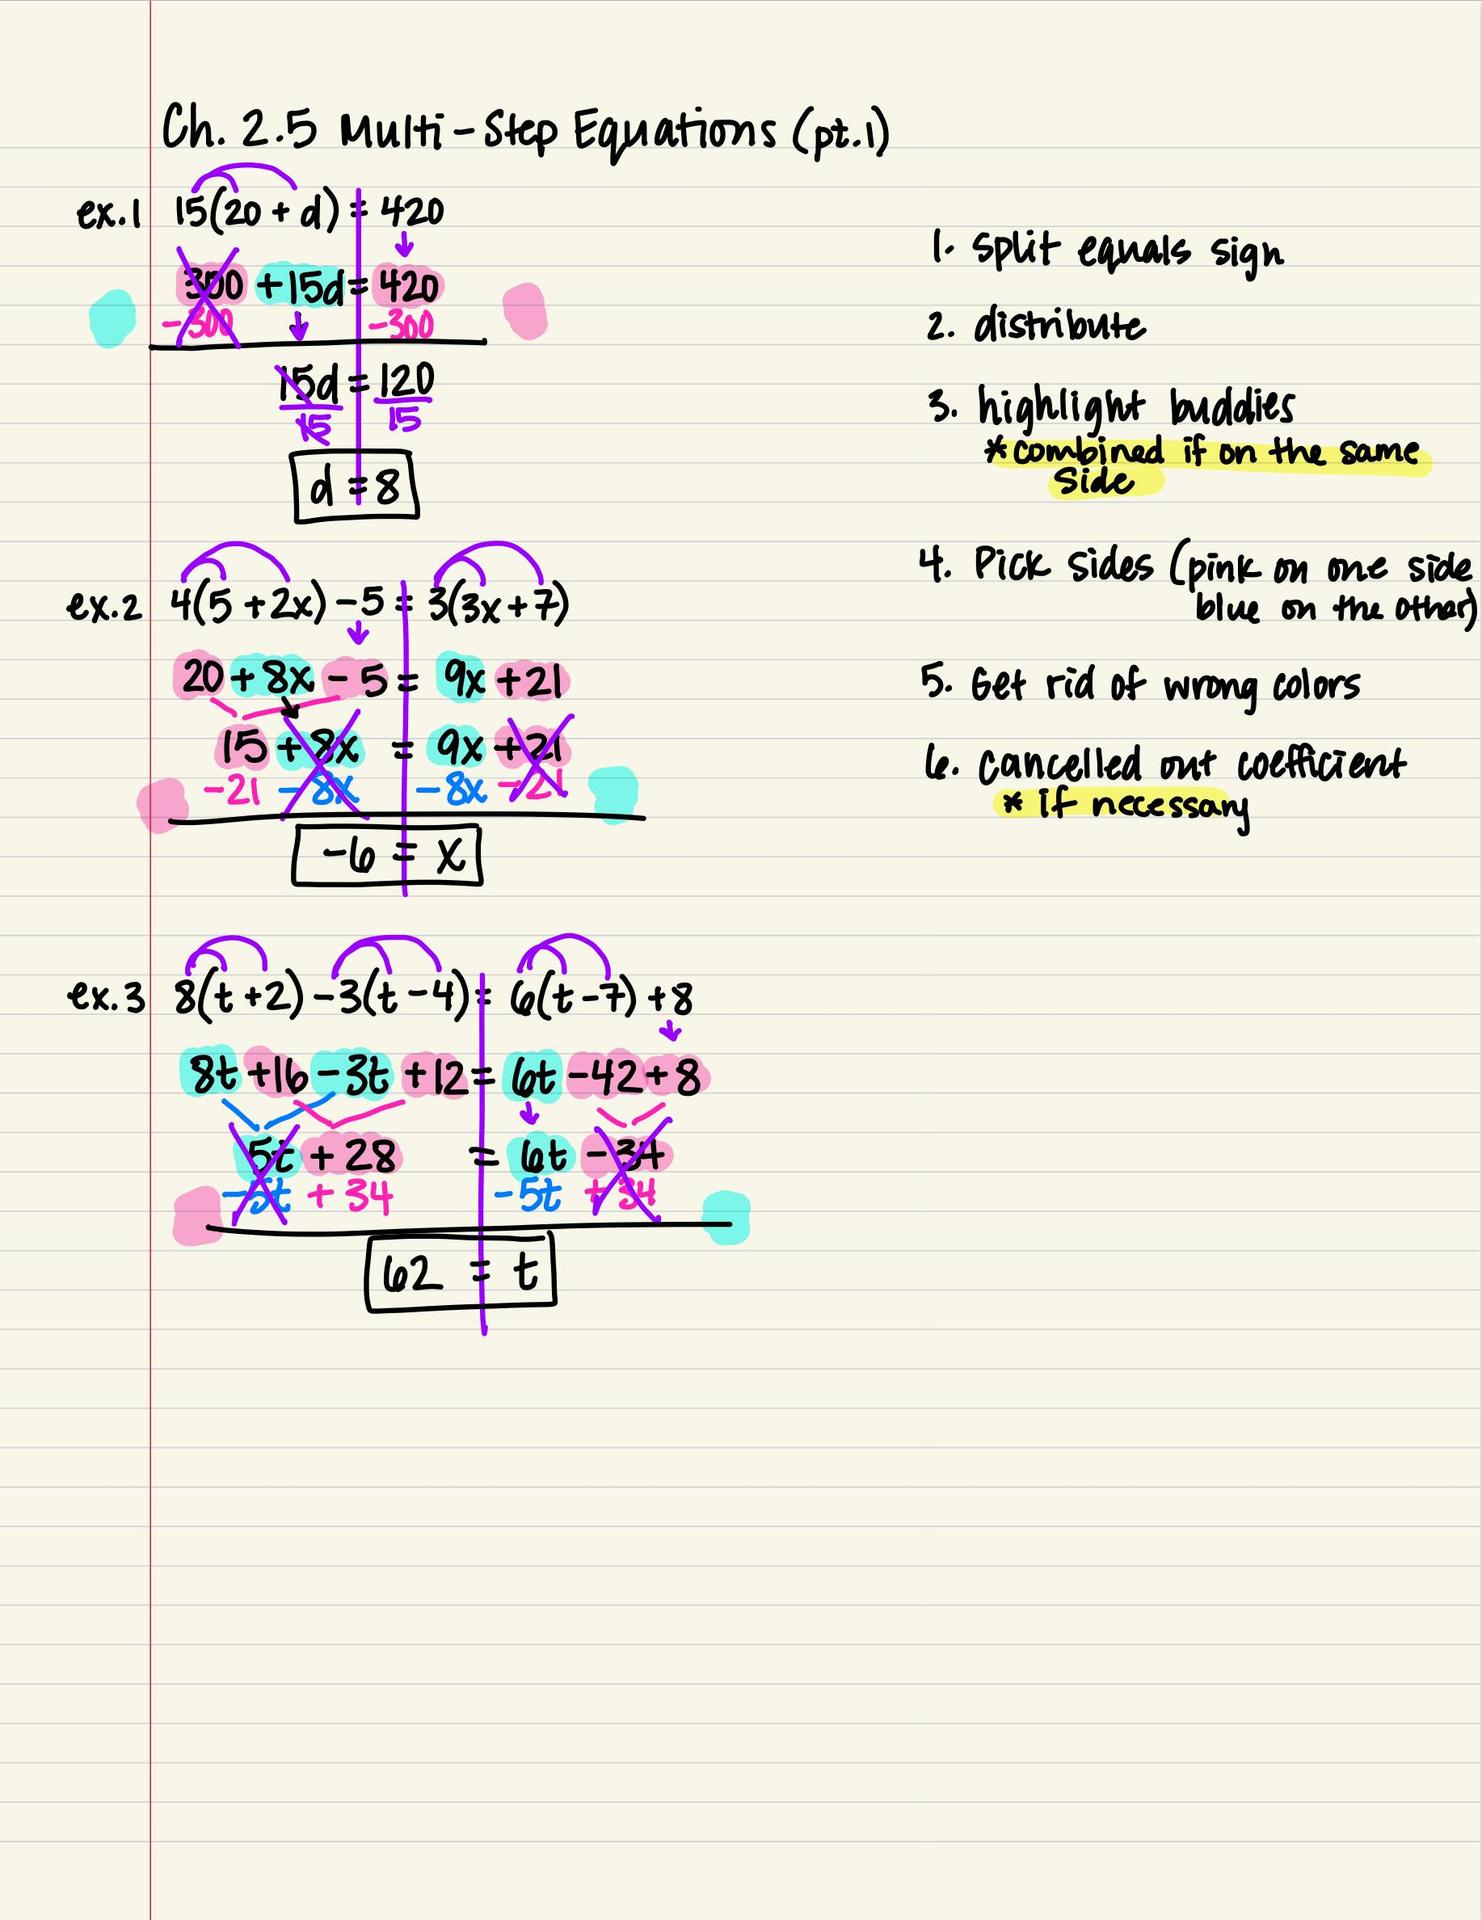 Ch. 2.5 Multi-Step Equations (pt.1)
ex.1 15(20 + d) = 420
300 +15d = 420
-300 -300
15d = 120
15 15
d = 8
ex.2 4(5 + 2x) - 5 = 3(3x + 7)
20 + 8x - 5 = 9x + 21
15 + 8x = 9x + 21
-21 - 8x - 8x - 21
-6 = x
ex.3 8(t + 2) - 3(t - 4) = 6(t - 7) + 8
8t + 16 - 3t + 12 = 6t - 42 + 8
5t + 28 = 6t - 34
-5t + 34 - 5t + 34
62 = t
1. split equals sign
2. distribute
3. highlight buddies
*combined if on the same
side
4. Pick sides (pink on one side
blue on the other)
5. Get rid of wrong colors
6. cancelled out coefficient
* if necessary